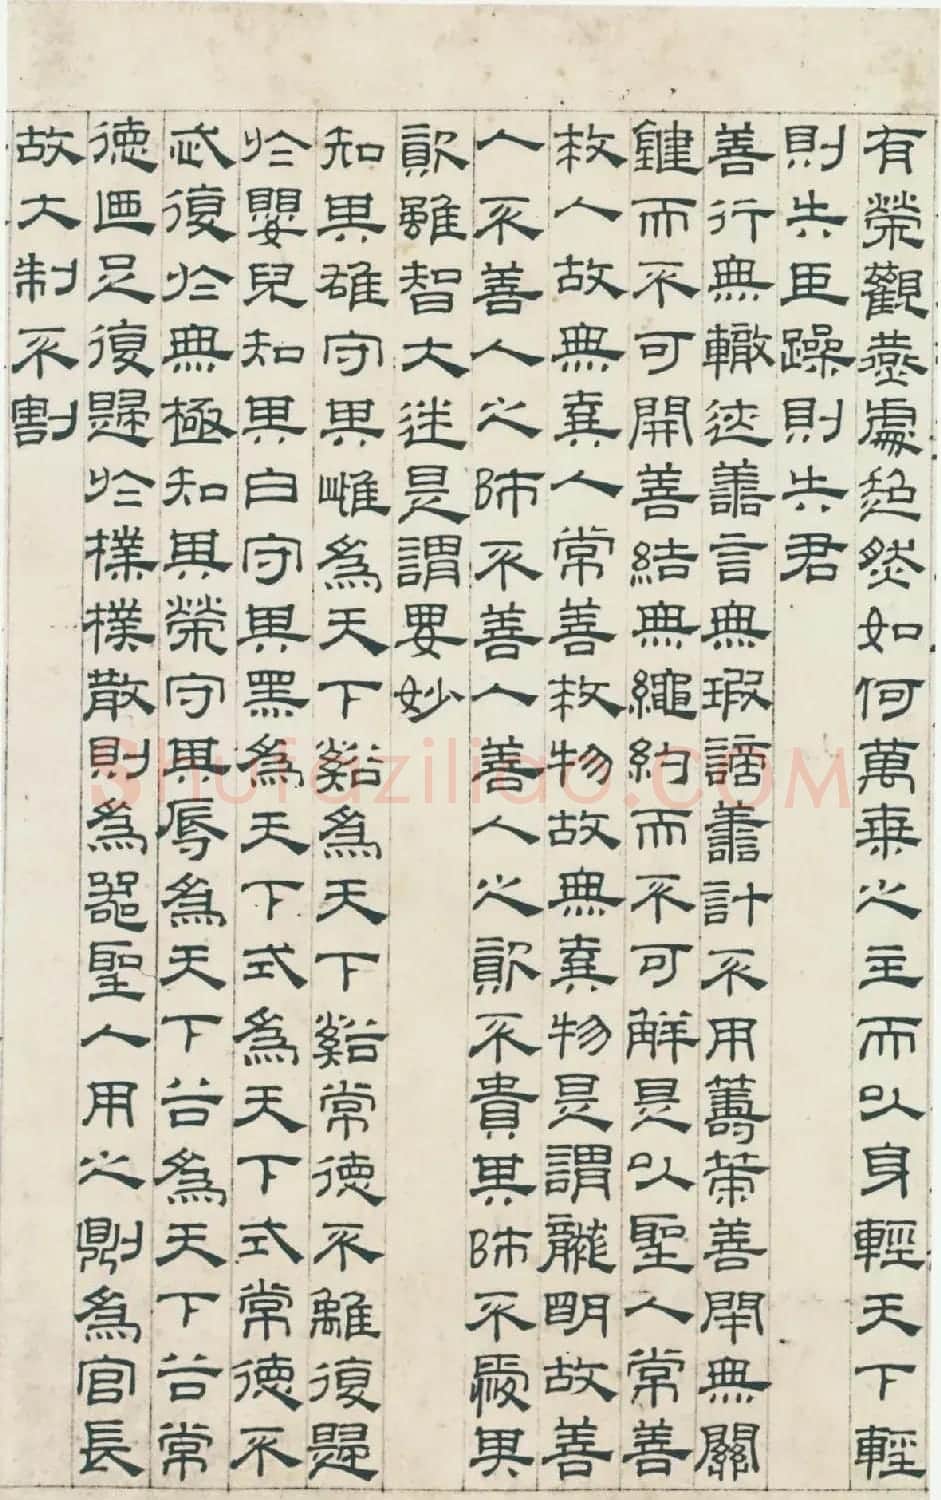 有榮觀燕處超然如何萬乗之主而以身輕天下輕
則失臣躁則失君
善行無轍迹善言無瑕謫善計不用籌策善閉無關
鍵而不可開善結無繩約而不可解是以聖人常善
救人故無棄人常善救物故無棄物是謂襲明故善
人不善人之師不善人善人之資不貴其師不愛其
資雖智大迷是謂要妙
知其雄守其雌爲天下谿爲天下谿常德不離復歸
於嬰兒知其白守其黑爲天下式爲天下式常德不
忒復於無極知其榮守其辱爲天下谷爲天下谷常
德迺足復歸於樸樸散則爲器聖人用之則爲官長
故大制不割
Shufaziliao.COM